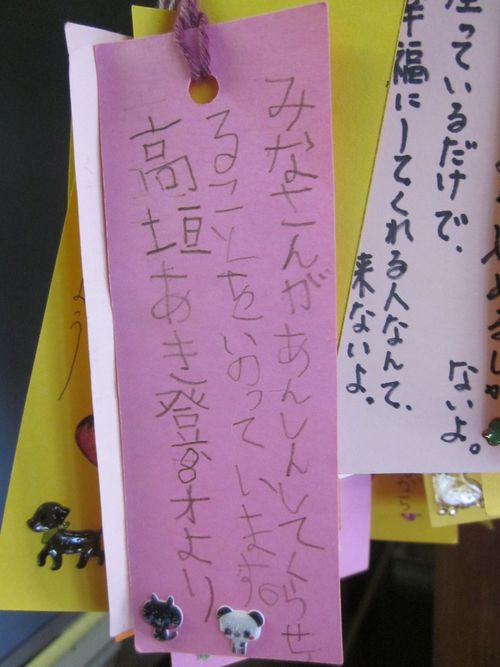 みなさんがあんしんしてくらせ
ることをいのっています。
高垣あき登
座っているだけで、
幸福にしてくれる人なんて、
来ないよ。
ないよ。